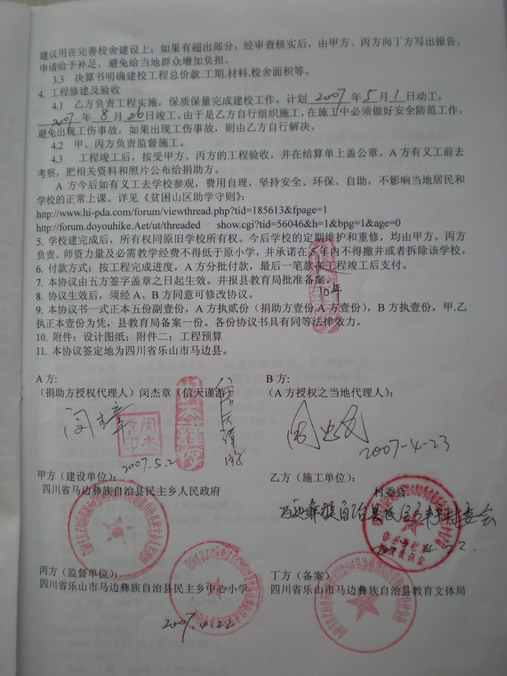 建议用在完善校舍建设上；如果有超出部分，经审查核实后，由甲方、丙方向丁方写出报告，
申请给予补足，避免给当地群众增加负担。
3.3 决算书明确建校工程总价款.工期.材料.校舍面积等。
4. 工程修建及验收
4.1 乙方负责工程实施，保质保量完成建校工作。计划 2007 年 5 月 1 日动工，
2007 年 8 月 26 日竣工。由于是乙方自行组织施工，在施工中必须做好安全防范工作，
避免出现工伤事故，如果出现工伤事故，则由乙方自行解决。
4.2 甲、丙方负责监督施工。
4.3 工程竣工后，按受甲方、丙方的工程验收，并在结算单上盖公章。A 方有义工前去
考察，把相关资料和照片公布给捐助方。
A 方今后如有义工去学校参观，费用自理，坚持安全、环保、自助，不影响当地居民和
学校的正常上课。详见《贫困山区助学守则》：
http://www.hi-pda.com/forum/viewthread.php?tid=185613&fpage=1
http://forum.doyouhike.Aet/ut/threaded show.cgi?tid=56046&h=1&bpg=1&age=0
5. 学校建完成后，所有权同原旧学校所有权。今后学校的定期维护和重修，均由甲方、丙方
负责。师资力量及必需教学经费不得低于原小学，并承诺在 年内不得撤并或者拆除该学校。
10年
6. 付款方式：按工程完成进度，A 方分批付款，最后一笔款在工程竣工后支付。
7. 本协议由五方签字盖章之日起生效。并报县教育局批准备案。
8. 协议生效后，须经 A、B 方同意可修改协议。
9. 本协议书一式正本五份副壹份，A 方执贰份（捐助方壹份.A 方壹份），B 方执壹份，甲.乙
执正本壹份为凭，县教育局备案一份。各份协议书具有同等法律效力。
10. 附件：设计图纸；附件二：工程预算
11. 本协议签定地为四川省乐山市马边县。
A 方：
（捐助方授权代理人）闵杰章（信天谨游）
信天谨游
2007.5.2
B 方：
（A 方授权之当地代理人）：
2007-4-23
甲方（建设单位）：
四川省马边彝族自治县民主乡人民政府
乙方（施工单位）：
村委会
丙方（监督单位）：
四川省乐山市马边彝族自治县民主乡中心小学
2007.4.22
丁方（备案）
四川省乐山市马边彝族自治县教育文体局